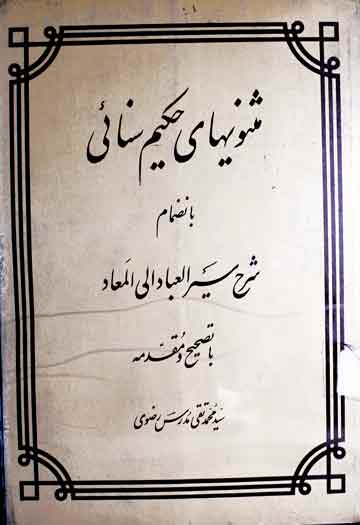 مثنویهای حکیم سنائی
بانضمام
شرح سیر العباد الی المعاد
با تصحیح و مقدمه
سید محمد تقی مدرس رضوی